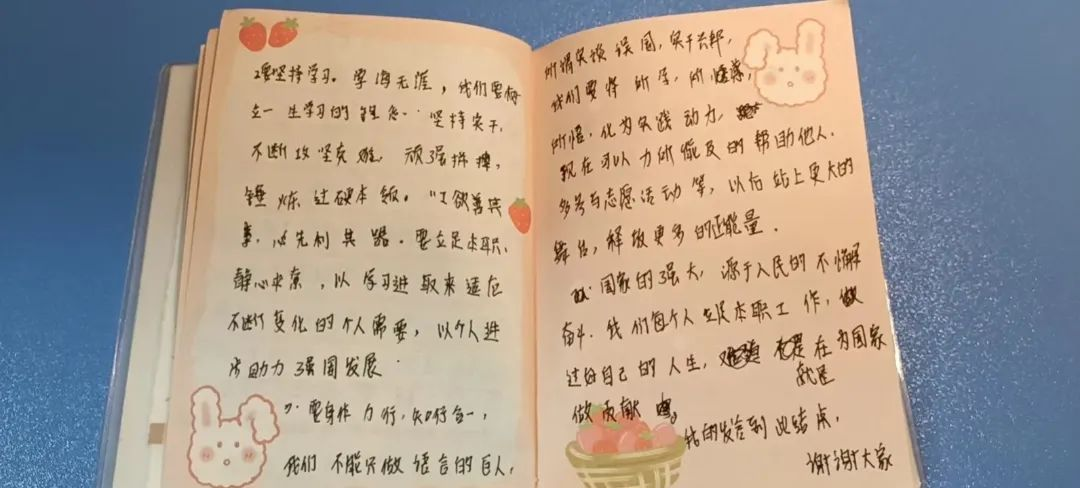 2要坚持学习。学海无涯，我们要树
立一生学习的理念·坚持实干，
不断攻坚克难，顽强拼搏，
锤炼过硬本领。"工欲善其
事，必先利其器。要立足本职、
静心夯实，以学习进取来适应
不断变化的个人需要，以个人进
步助力强国发展·
3·要身体力行，知行合一，
我们不能只做语言的巨人，
所谓空谈误国，实干兴邦，
我们要将所学，所感，
所悟，化为实践动力，
现在可以力所能及的帮助他人.
多参与志愿活动等，以后站上更大的
舞台，释放更多的正能量.
国家的强大，源于人民的不懈
奋斗.我们每个人立足本职工作，做
过好自己的人生，就是在为国家
做贡献。
我的发言到此结束，
谢谢大家